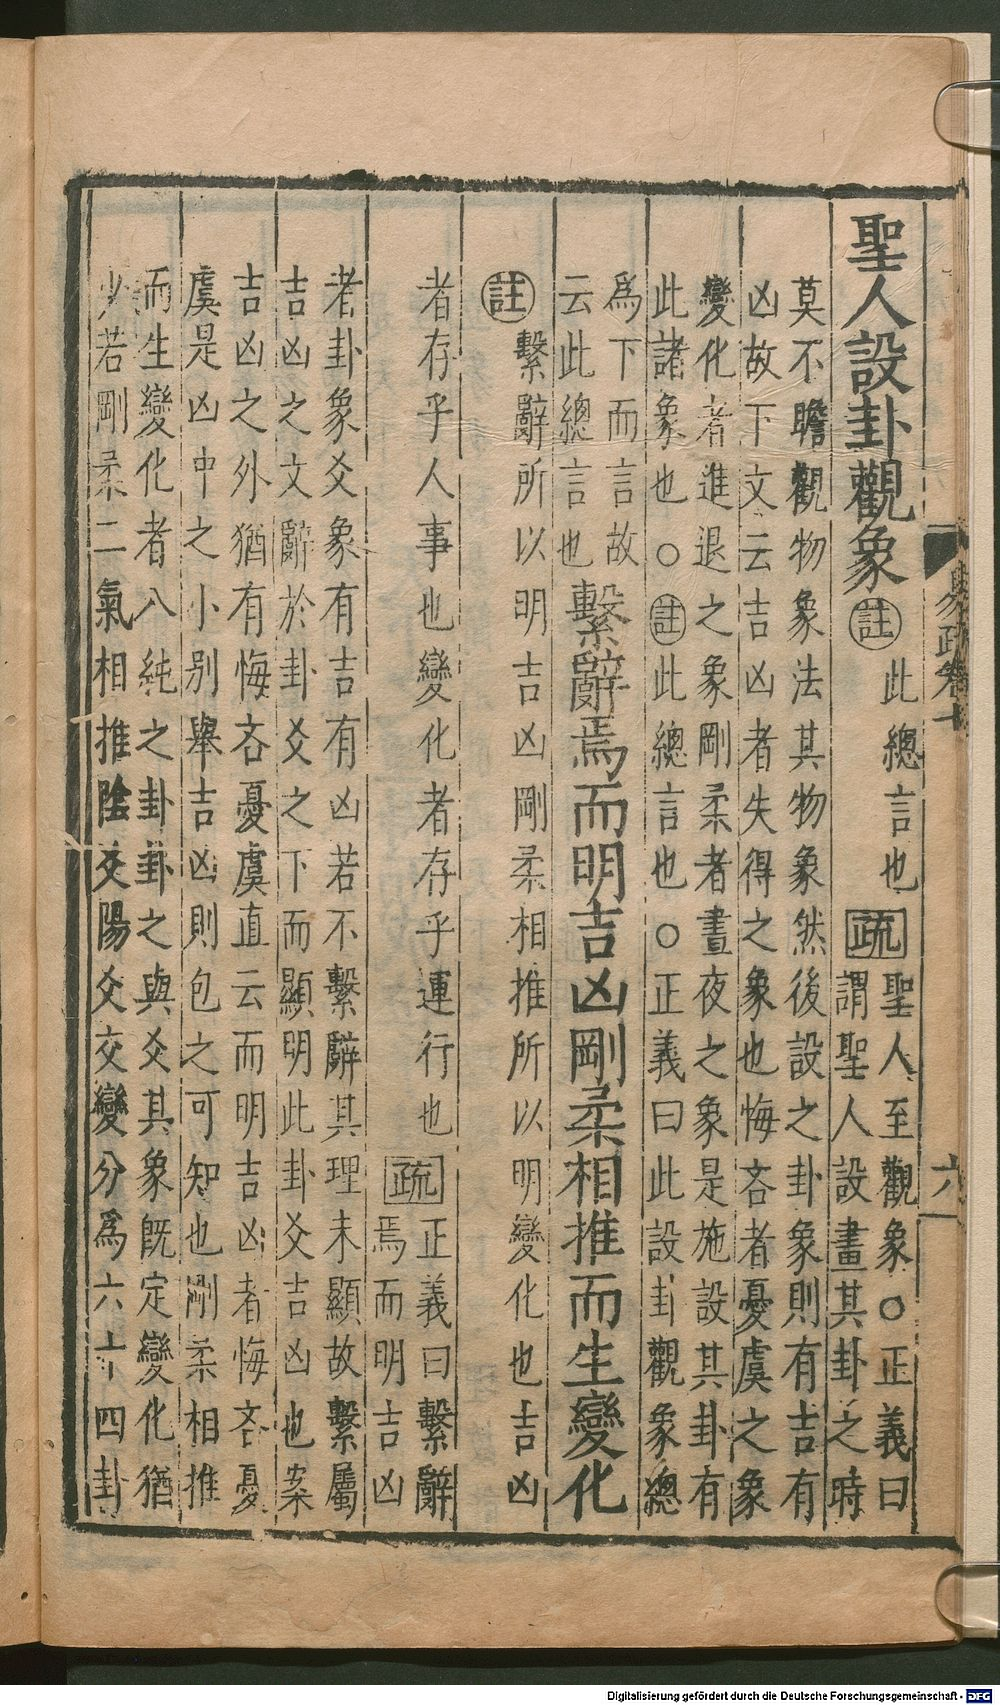 聖人設卦觀象 註 此總言也 疏 聖人至觀象○正義曰
謂聖人設畫其卦之時
莫不瞻觀物象法其物象然後設之卦象則有吉有
凶故下文云吉凶者失得之象也悔吝者憂虞之象
變化者進退之象剛柔者晝夜之象是施設其卦有
此諸象也○註此總言也○正義曰此設卦觀象總
爲下而言故
云此總言也 繫辭焉而明吉凶剛柔相推而生變化
註 繫辭所以明吉凶剛柔相推所以明變化也吉凶
者存乎人事也變化者存乎運行也 疏 正義曰繫辭
焉而明吉凶
者卦象爻象有吉有凶若不繫辭其理未顯故繫屬
吉凶之文辭於卦爻之下而顯明此卦爻吉凶也案
吉凶之外猶有悔吝憂虞直云而明吉凶者悔吝憂
虞是凶中之小別舉吉凶則包之可知也剛柔相推
而生變化者八純之卦卦之與爻其象旣定變化猶
少若剛柔二氣相推陰爻陽爻交變分爲六十四卦
六
Digitalisierung gefördert durch die Deutsche Forschungsgemeinschaft - DFG